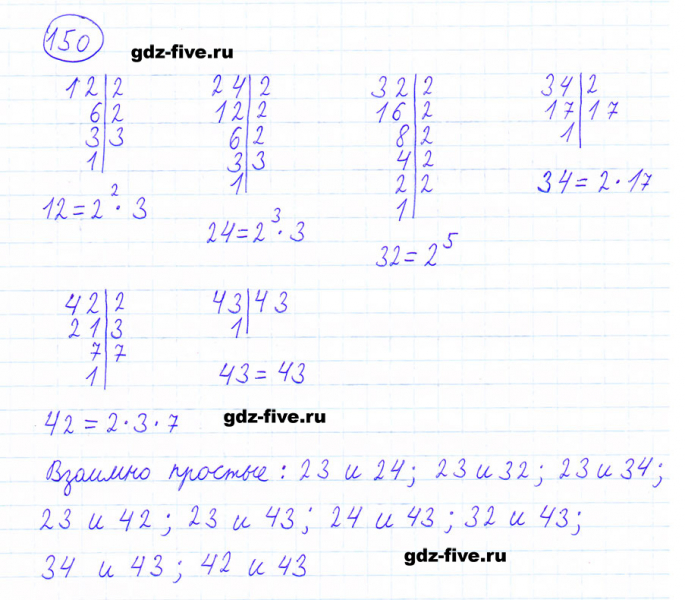 150
gdz-five.ru
12|2
6|2
3|3
1|
12=2²·3
24|2
12|2
6|2
3|3
1|
24=2³·3
32|2
16|2
8|2
4|2
2|2
1|
32=2⁵
34|2
17|17
1|
34=2·17
42|2
21|3
7|7
1|
42=2·3·7
43|43
1|
43=43
gdz-five.ru
Взаимно простые: 23 и 24; 23 и 32; 23 и 34;
23 и 42; 23 и 43; 24 и 43; 32 и 43;
34 и 43; 42 и 43
gdz-five.ru